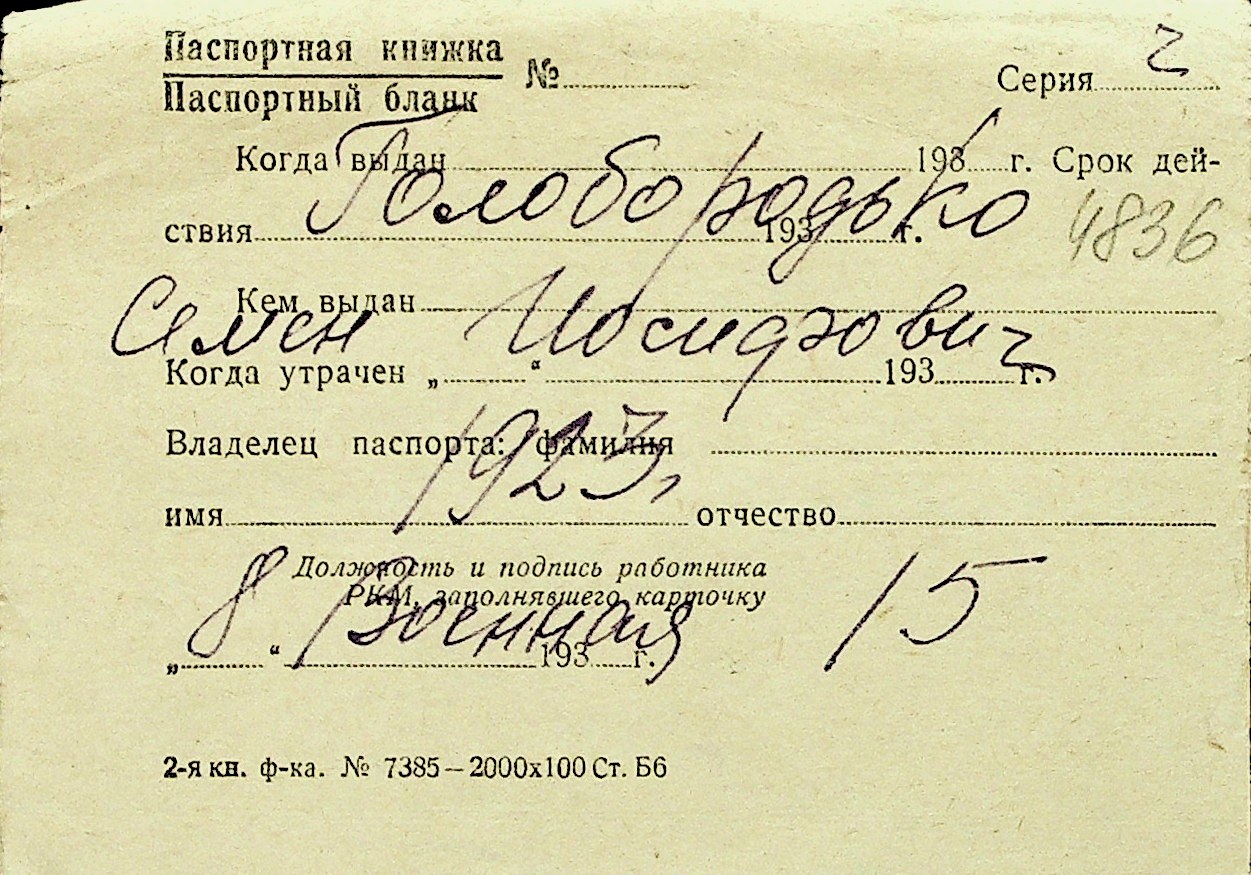 Паспортная книжка
Паспортный бланк
№
Серия
ч
Когда выдан 193 г. Срок дей-
Голобородько
ствия 193 г.
4836
Кем выдан
Семен Иосифович
Когда утрачен „ “ 193 г.
Владелец паспорта: фамилия
1923,
имя отчество
Должность и подпись работника
РКМ, заполнявшего карточку
8. Военная 15
„ “ 193 г.
2-я кн. ф-ка. № 7385—2000х100 Ст. Б6